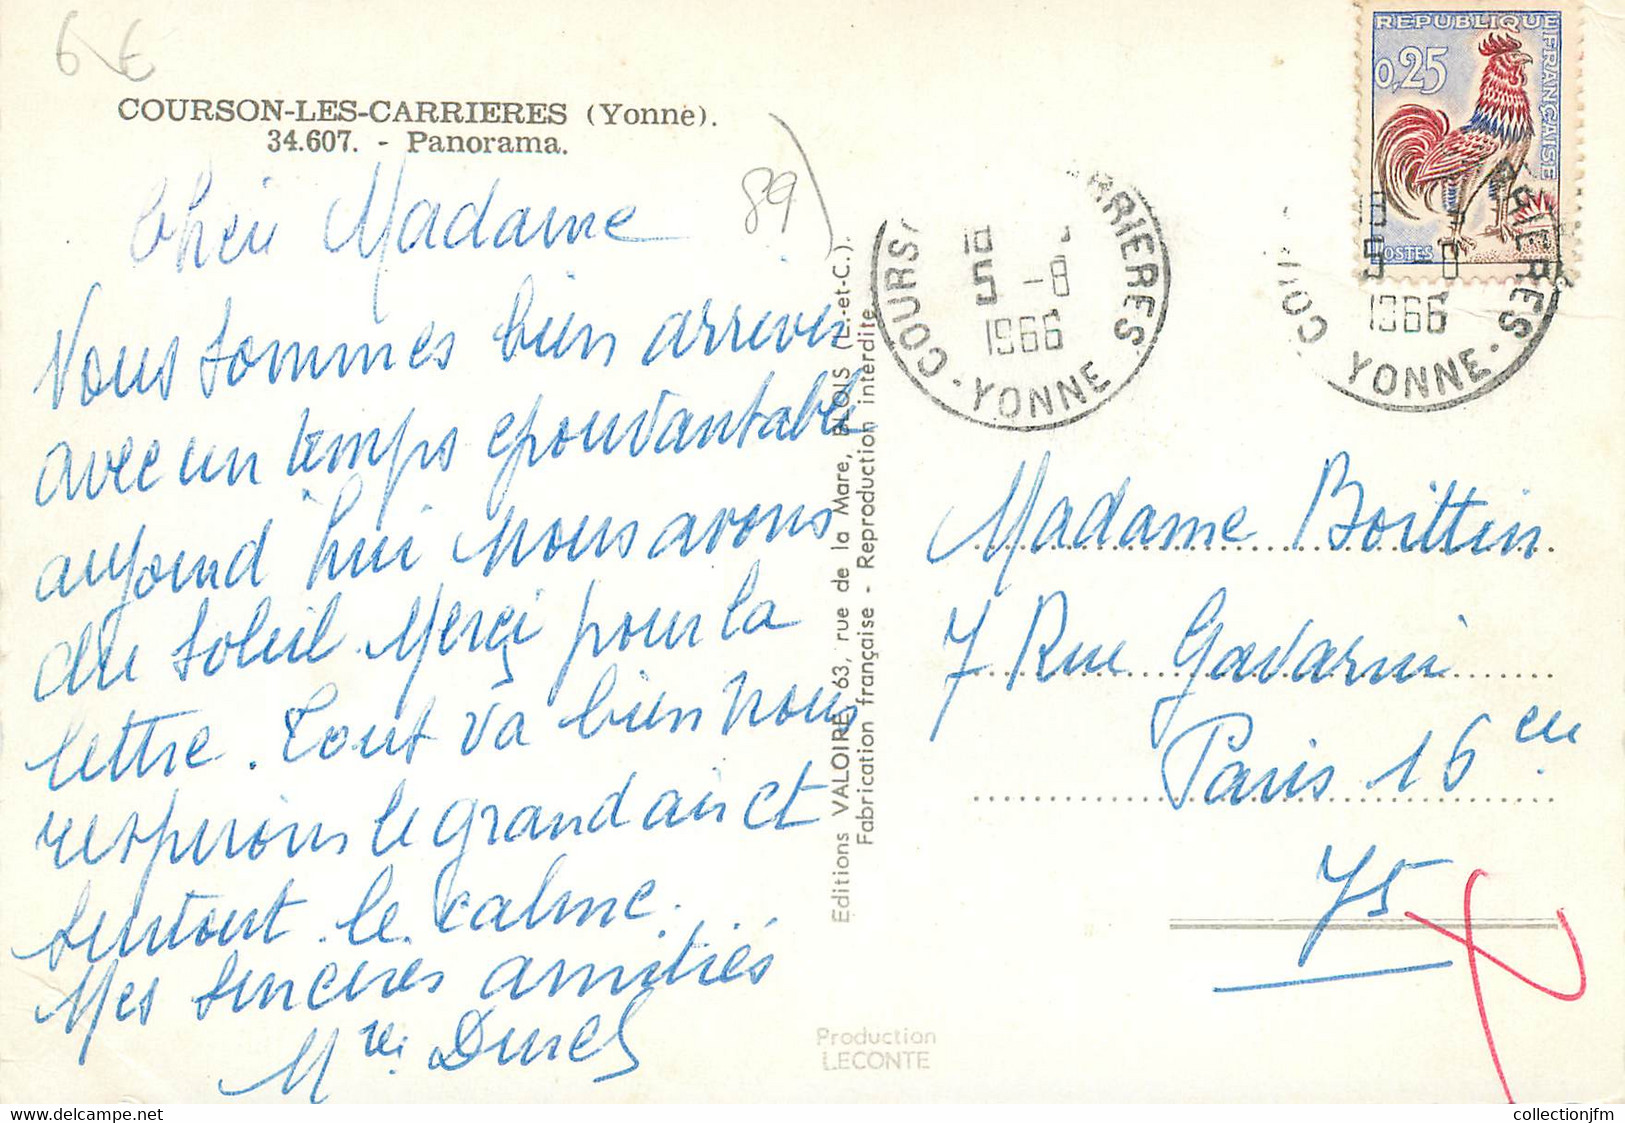 6 €
COURSON-LES-CARRIERES (Yonne).
34.607. - Panorama.
89
Cher Madame
Vous sommes bien arriver
avec un temps epouvantable
aujourd'hui nous avons
du soleil. Merçi pour la
lettre. Tout va bien nous
respirons le grand air et
surtout le calme.
Mes sinceres amitiés
Editions VALOIRE, 63, rue de la Mare, BLOIS (L.-et-C.).
Fabrication française - Reproduction interdite
Production
LECONTE
REPUBLIQUE FRANÇAISE
0,25
POSTES
COURS RRIERES
18
5 -8
1966
YONNE
COU RRIERES
18
5 -8
1966
YONNE
Madame Boittin
7 Rue Gavarni
Paris 16 em
75
collectionjfm